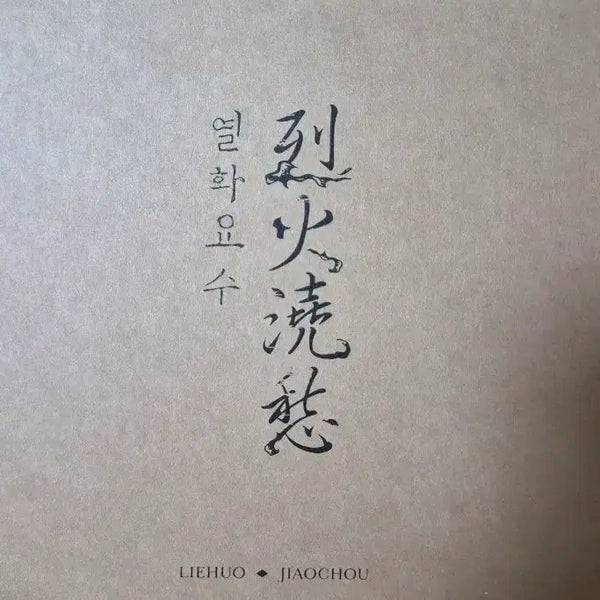 烈火澆愁
열화요수
LIEHUO ◆ JIAOCHOU